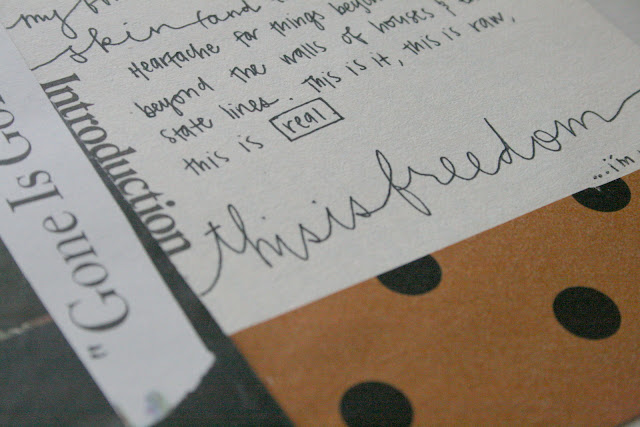 my
skin (and
Heartache for things beyond
beyond the walls of houses &
state lines. This is it, this is raw,
this is real.
thisisfreedom
...i'm
Introduction
"Gone Is Go